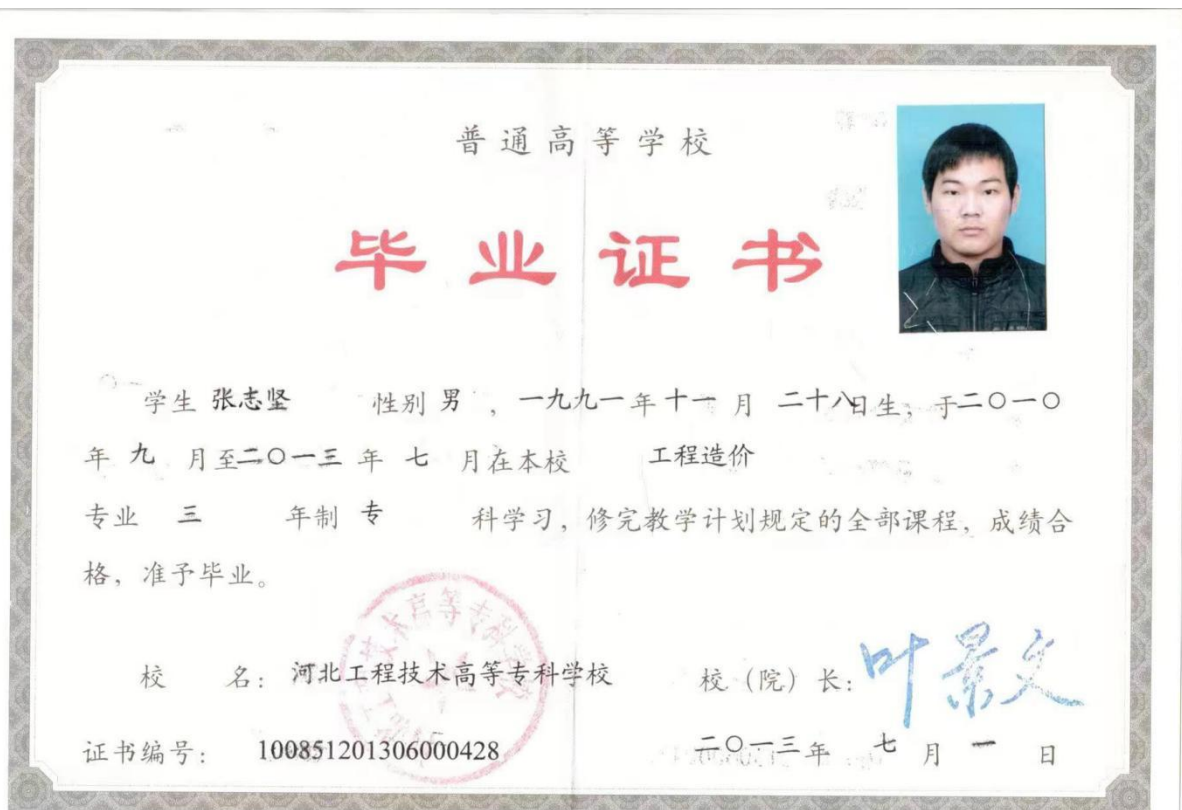 普通高等学校
毕业证书
学生 张志坚 性别 男 ，一九九一年十一月 二十八日生，于二〇一〇
年 九 月至二〇一三 年 七 月在本校 工程造价
专业 三 年制 专 科学习，修完教学计划规定的全部课程，成绩合
格，准予毕业。
校 名：河北工程技术高等专科学校 校（院）长：叶景文
证书编号： 100851201306000428 二〇一三年 七 月 一 日